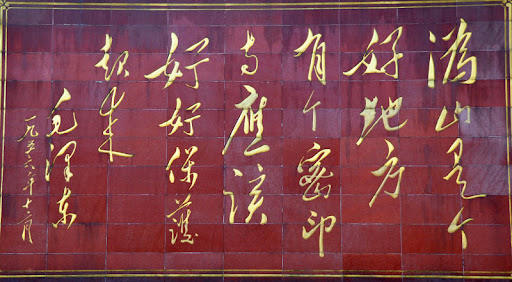 溈山是个
好地方
有个密印
寺應該
好好保護
起来
毛澤东
一九五六年十二月